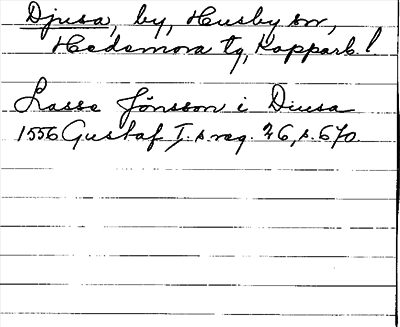 Djusa, by, Husby sn,
Hedemora tg, Kopparb. l
Lasse Jönsson i Diusa
1556 Gustaf I:s reg. 26, s. 670.